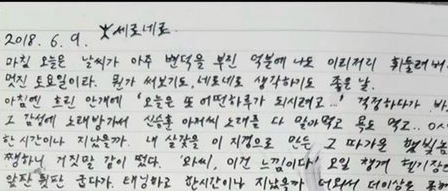 2018. 6. 9. 세로네로
마침 오늘은 날씨가 아주 변덕을 부린 덕분에 나도 이리저리 휘둘려
멋진 토요일이라. 뭔가 써보기도, 세로네로 생각하기도 좋은 날.
아침엔 흐린 안개에 '오늘은 또 어떤하루가 되시려고...' 걱정하다가
그 감성에 노래방가서 신승훈 아저씨 노래를 다 말아먹고 욕도 먹고..
한시간이나 지났을까. 내 살갗을 이 지경으로 만든 그 따가운 햇빛
쨍하니 거짓말 같이 떴다. '와씨, 이건 느낌이다' 오일 챙겨
앞판 뒷판 굽다가. 태닝하고 한시간이나 지났을까 더워서